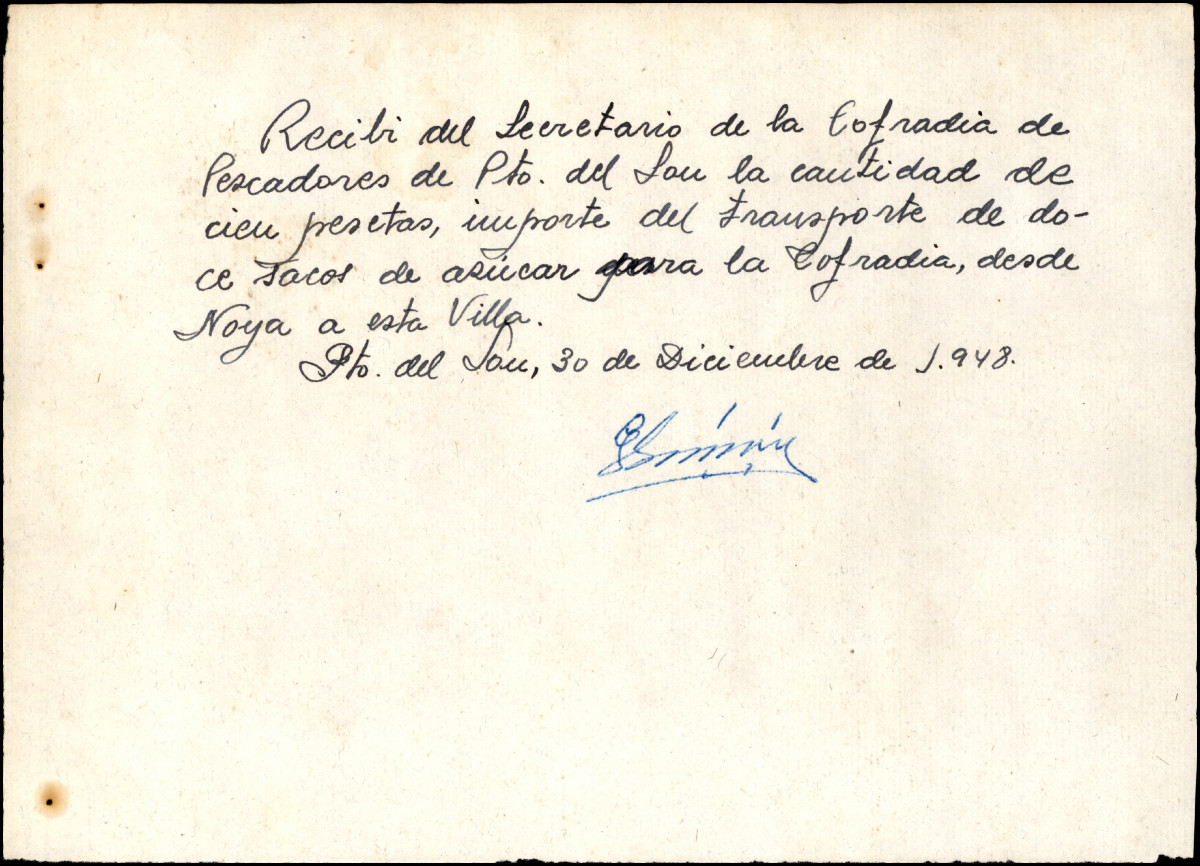 Recibi del Secretario de la Cofradia de
Pescadores de Pto. del Son la cantidad de
cien pesetas, importe del transporte de do-
ce sacos de azúcar para la Cofradia, desde
Noya a esta Villa.
Pto. del Son, 30 de Diciembre de 1.948.